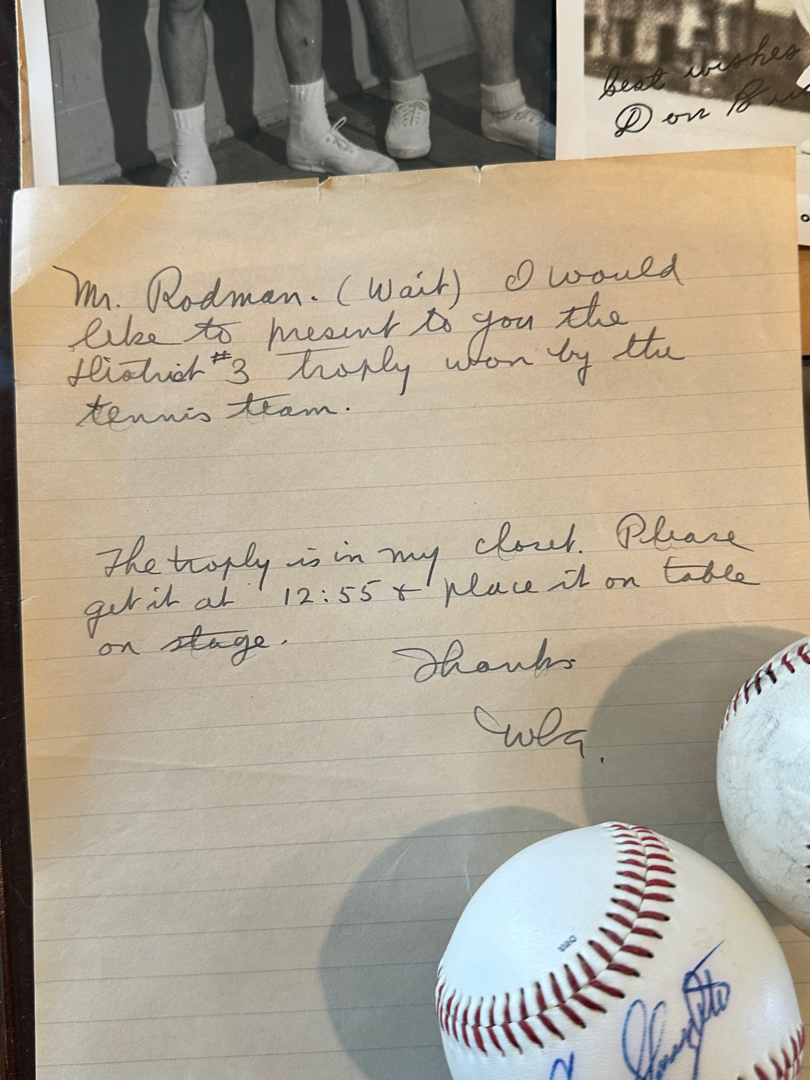 best wishes
Don
Mr. Rodman. (Wait) I would
like to present to you the
District #3 trophy won by the
tennis team.
The trophy is in my closet. Please
get it at 12:55 & place it on table
on stage.
Thanks